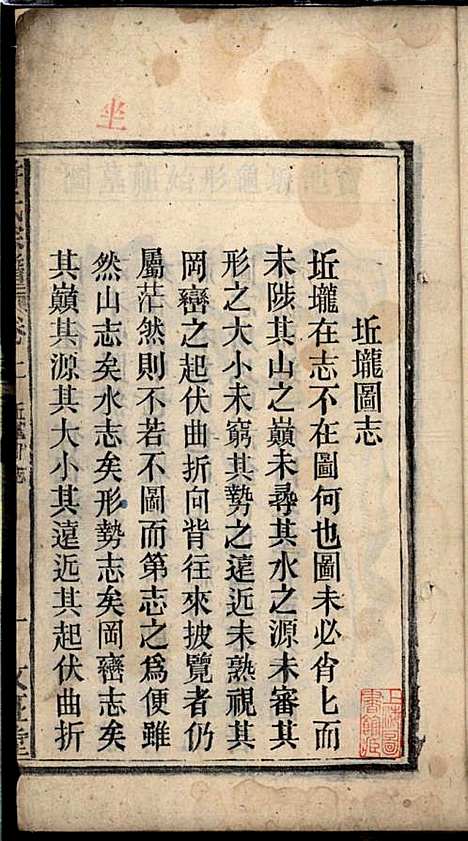 坵壠圖志
坵壠在志不在圖何也圖未必肖匕而
未陟其山之巔未尋其水之源未審其
形之大小未窮其勢之遠近未熟視其
岡巒之起伏曲折向背往來披覽者仍
屬茫然則不若不圖而第志之為便雖
然山志矣水志矣形勢志矣岡巒志矣
其巔其源其大小其遠近其起伏曲折
坐
上海圖
書館藏